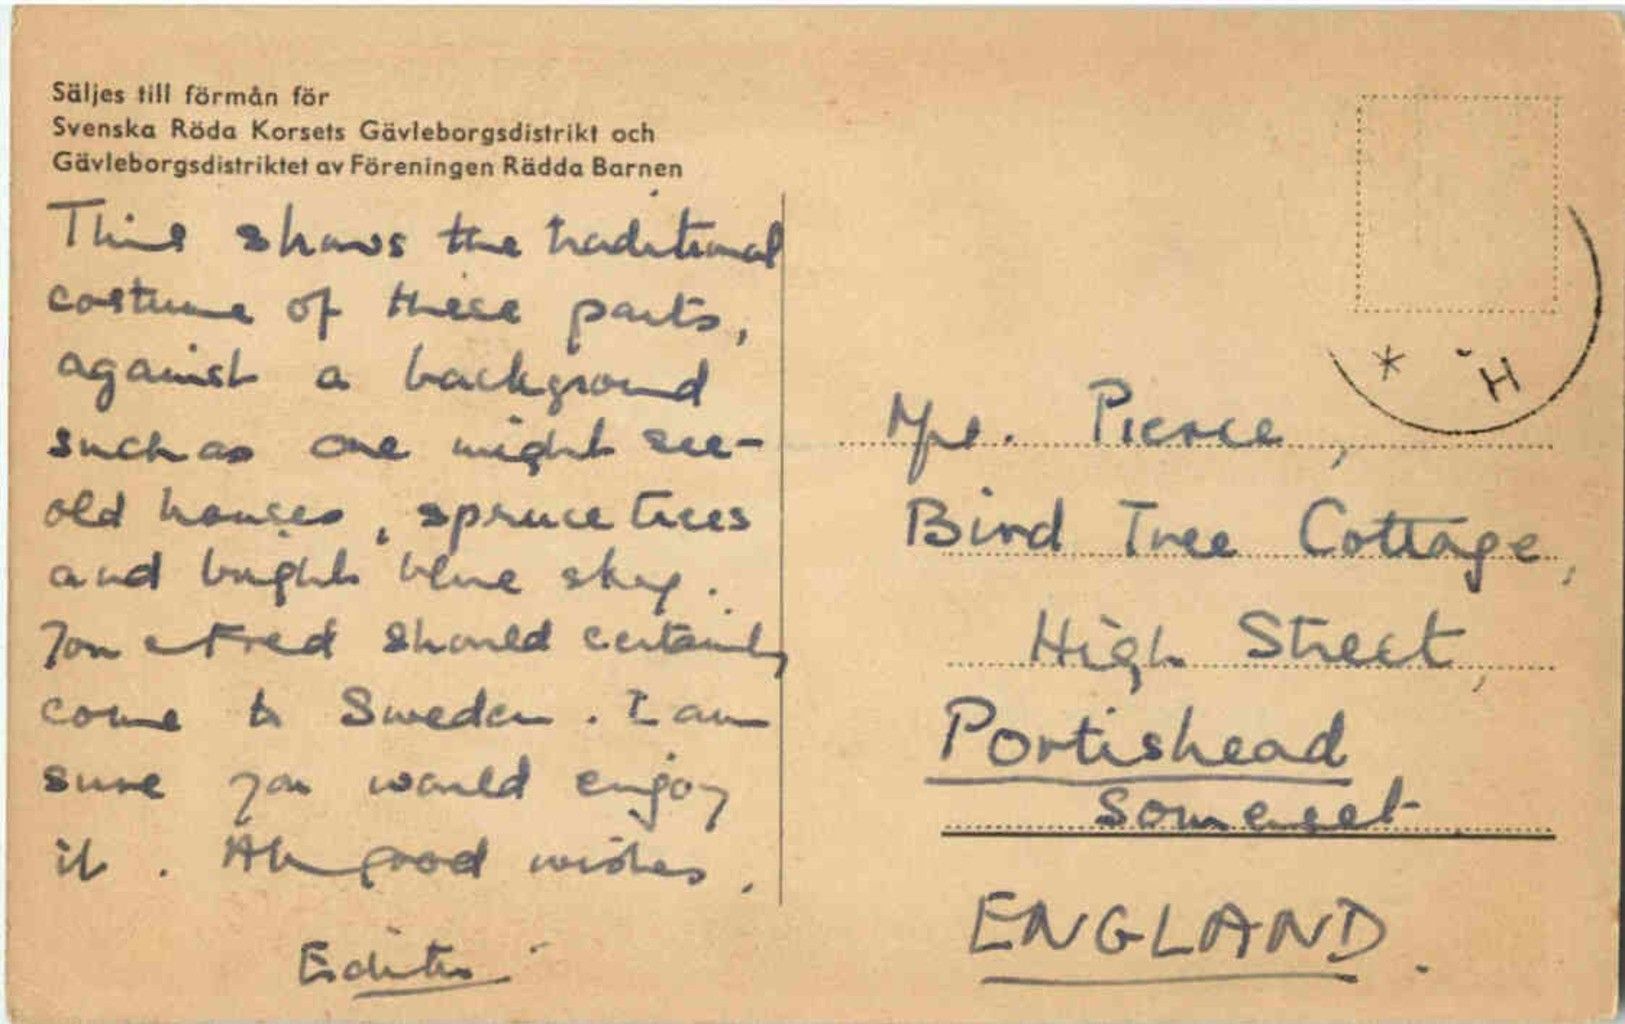 Säljes till förmån för
Svenska Röda Korsets Gävleborgsdistrikt och
Gävleborgsdistriktet av Föreningen Rädda Barnen
This shows the traditional
costume of these parts,
against a background
such as one might see -
old houses, spruce trees
and bright blue sky.
You & Fred should certainly
come to Sweden. I am
sure you would enjoy
it. All good wishes.
Edith
* H
Mrs. Pierce,
Bird Tree Cottage,
High Street,
Portishead
Somerset
ENGLAND.